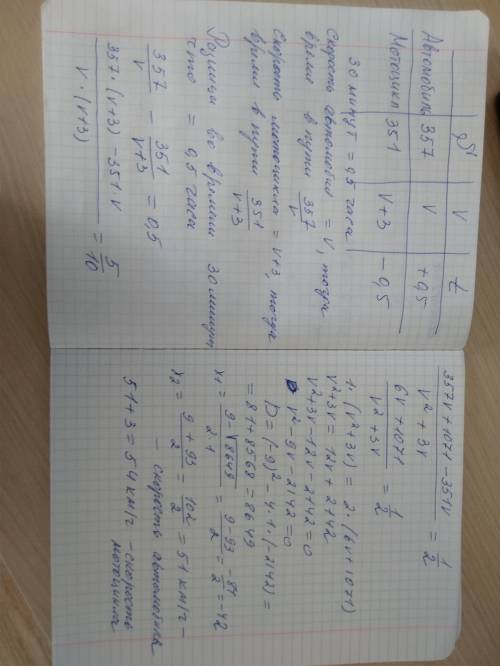 S V t
Автомобиль 357 V +0,5
Мотоцикл 351 V+3 -0,5
30 минут = 0,5 часа
Скорость автомобиля = V, тогда
время в пути 357/V
Скорость мотоцикла = V+3, тогда
время в пути 351/V+3
Разница во времени 30 минут
= 0,5 часа
357/V - 351/V+3 = 0,5
357·(V+3)-351V / V·(V+3) = 5/10
357V+1071-351V / V²+3V = 1/2
6V+1071 / V²+3V = 1/2
1·(V²+3V) = 2(6V+1071)
V²+3V = 12V+2142
V²+3V-12V-2142=0
V²-9V-2142=0
D=(-9)²-4·1·(-2142)=
=81+8568=8649
x₁ = 9-√8649 / 2·1 = 9-93 / 2 = -84 / 2 = -42
x₂ = 9+93 / 2 = 102 / 2 = 51 км/ч -
- скорость автомобиля
51+3=54 км/ч - скорость
мотоцикла